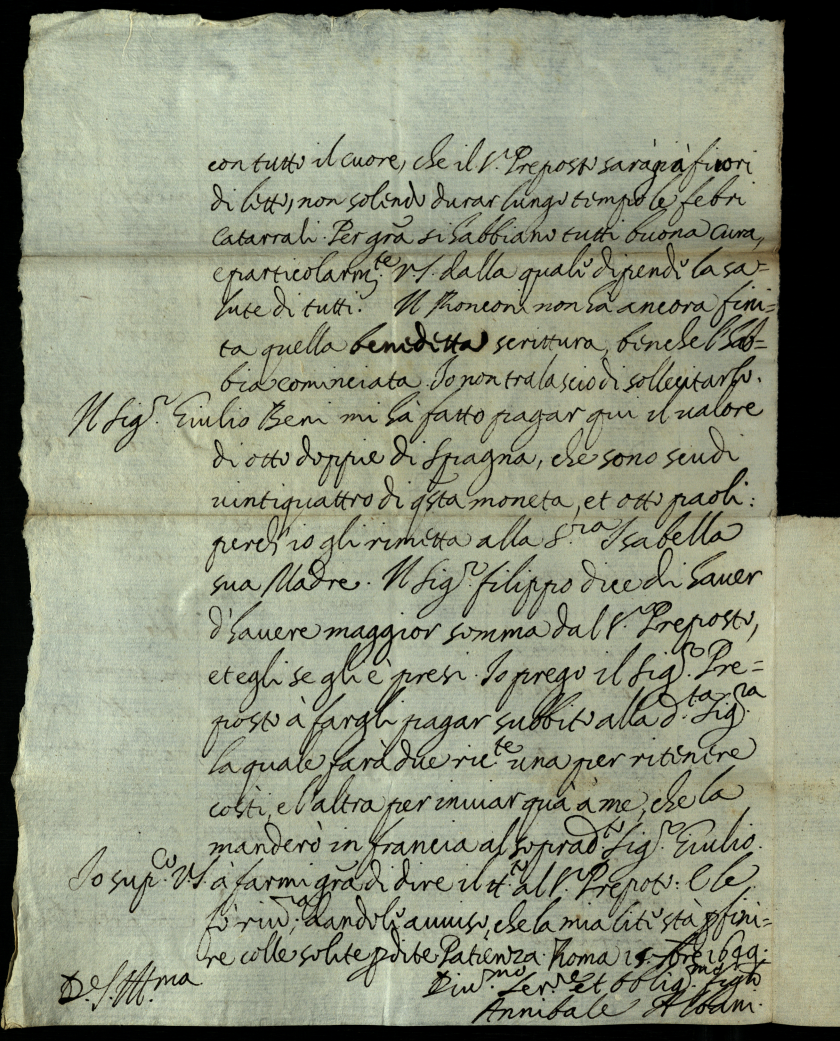 con tutto il cuore, che il Sr. Preposto sarà già fuori
di letto, non solendo durar lungo tempo le febri
Catarrali. Per gra si habbiano tutti buona cura,
e particolarmte V.S. dalla quale dipende la sa=
lute di tutti. Il Ronconi non hà ancora fini=
ta quella benedetta scrittura, benche l'hab=
bia cominciata. Io non tralascio di sollecitarlo.
Il Sigr. Giulio Beni mi hà fatto pagar qui il valore
di otto doppie di Spagna, che sono scudi
vintiquattro di qsta moneta, et otto paoli:
perch'io gli rimetta alla Sra Isabella
sua Madre. Il Sigr. filippo dice di haver
d'havere maggior somma dal Sr. Preposto,
et egli se gli è presi. Io prego il Sigr. Pre=
posto à fargli pagar subbito alla dta. Sigra
la quale farà due ricte una per ritenere
costì, e l'altra per inviar quà à me, che la
manderò in francia al sopradto Sigr. Giulio.
Io supco V.S. à farmi gra di dire il tto al Sr. Preposto: E le
fò rivza, dandole avviso, che la mia lite stà p fini=
re colle solite pdite Patienza. Roma 15. 1644.
De. S. Illma
Divmo Serre et obligmo figlio
Annibale Albani.